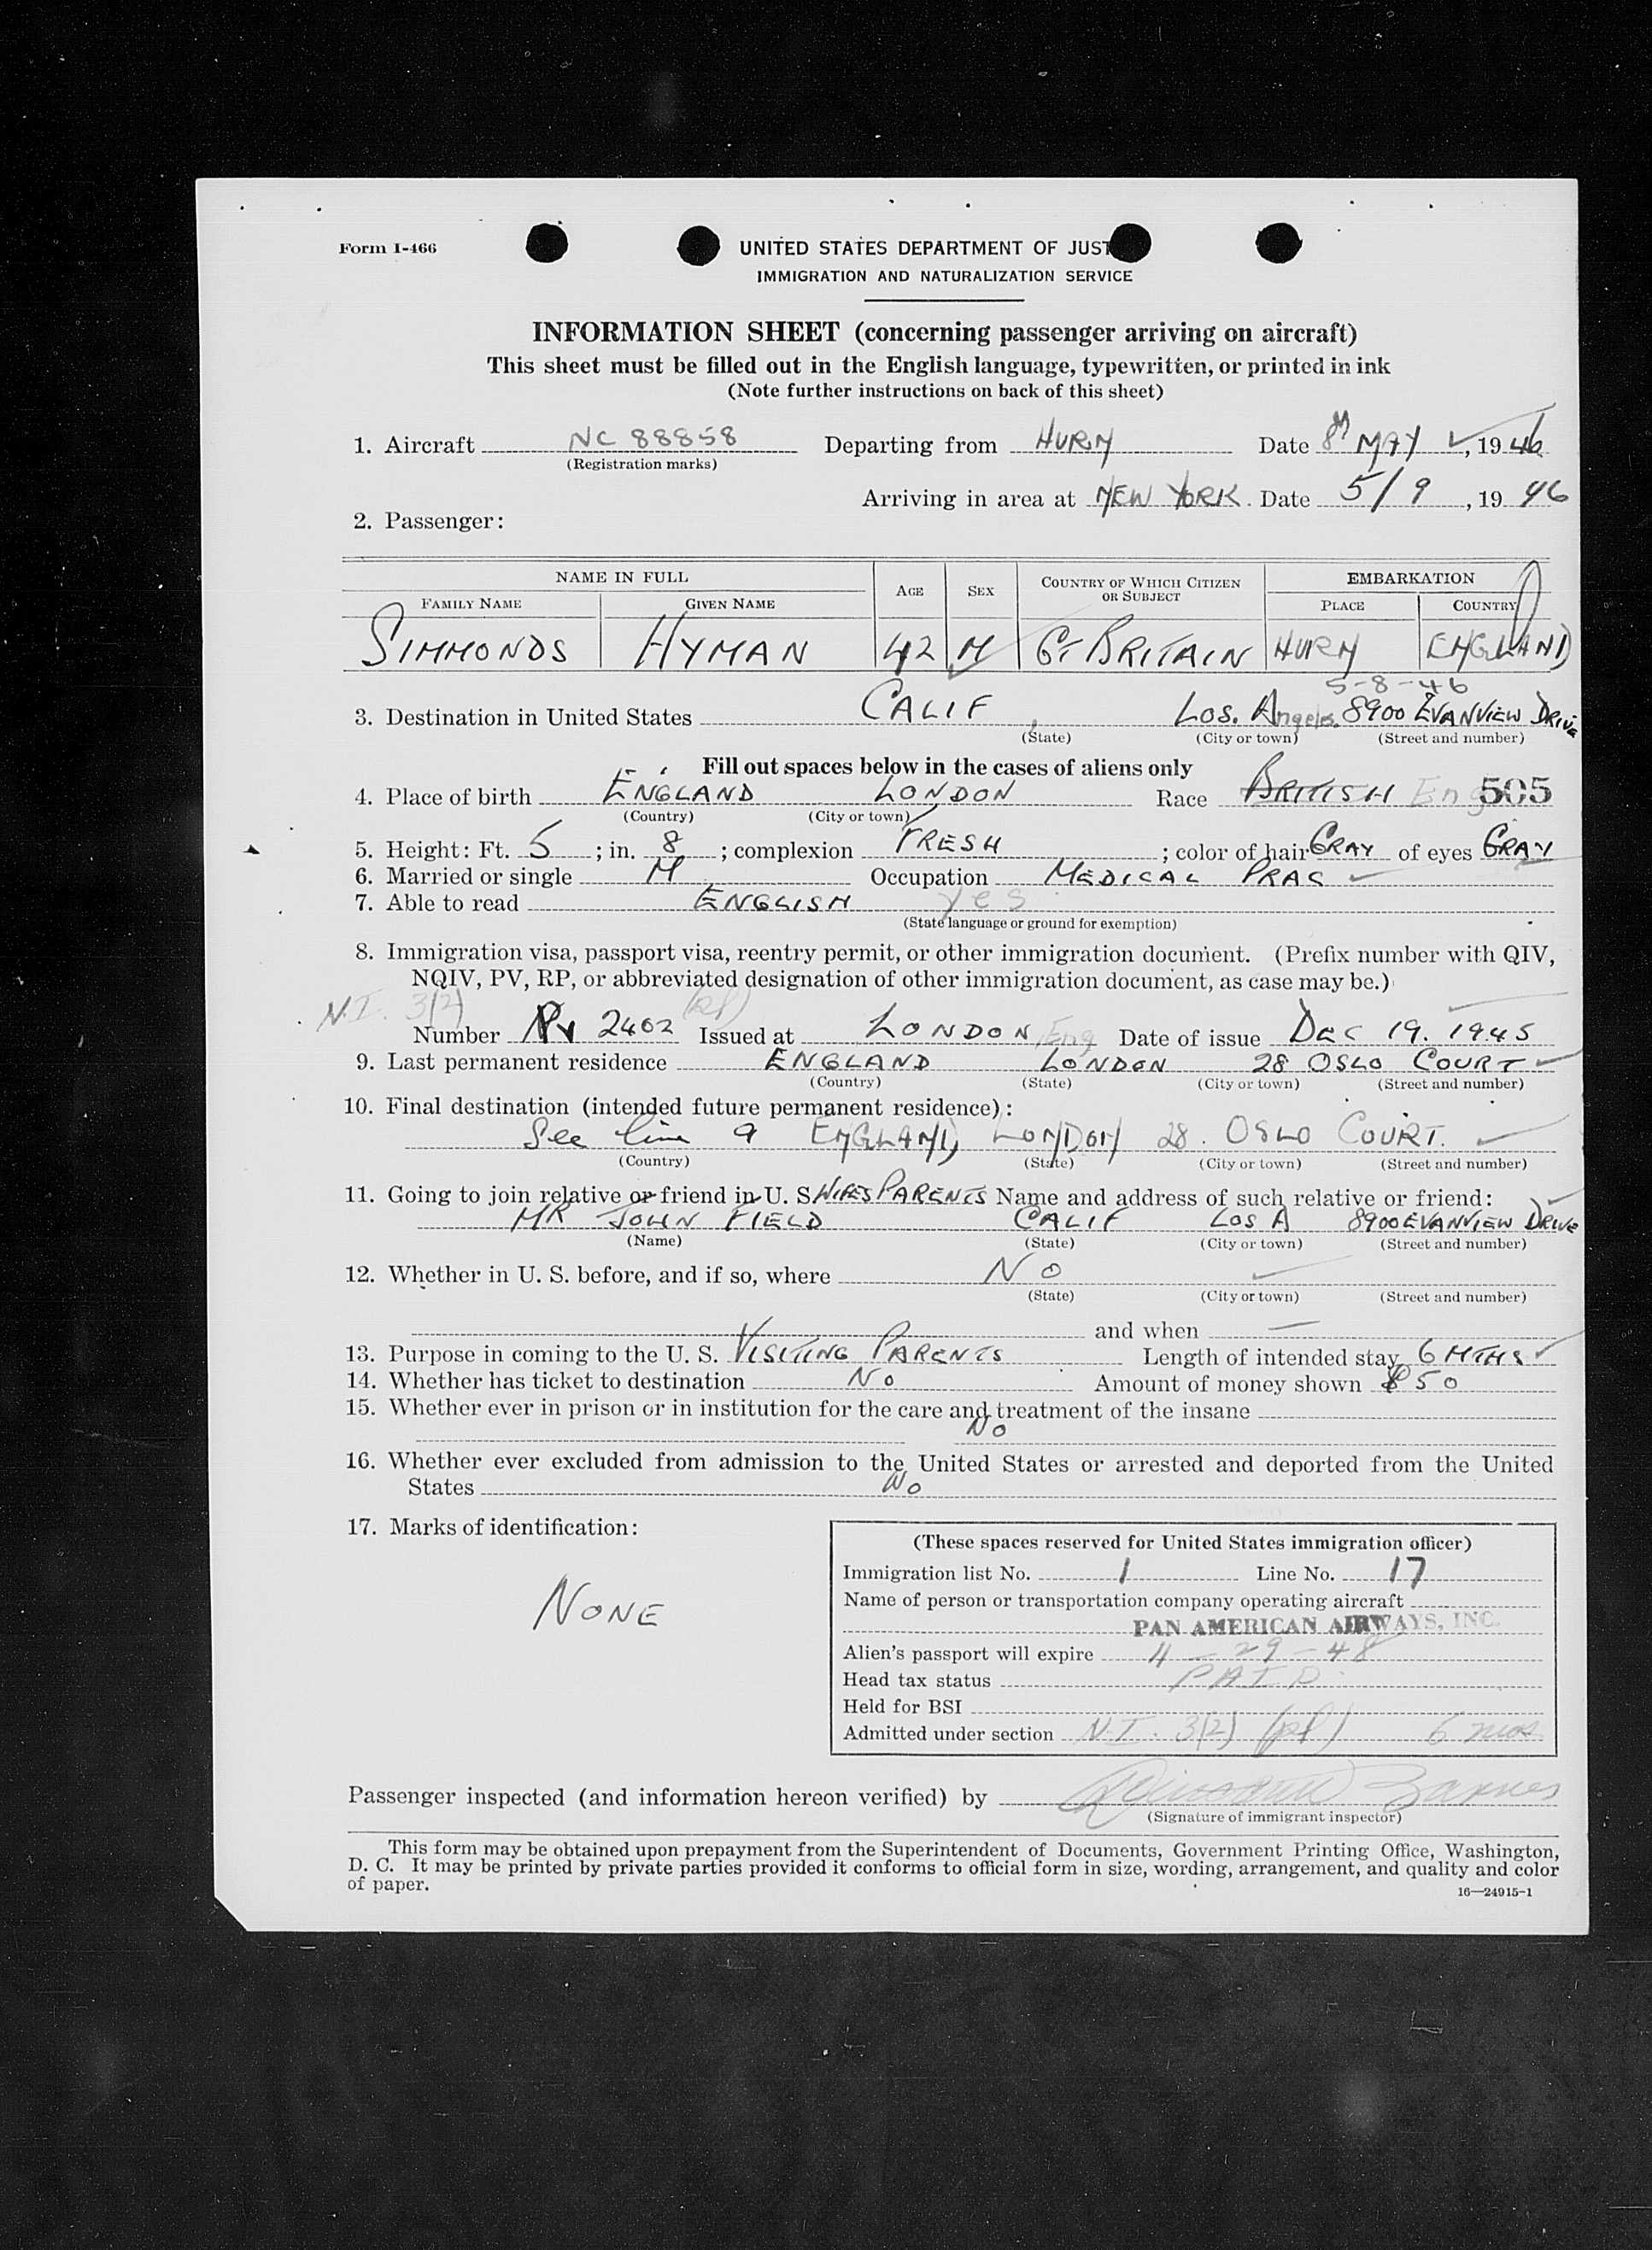 Form I-466
UNITED STATES DEPARTMENT OF JUST
IMMIGRATION AND NATURALIZATION SERVICE
INFORMATION SHEET (concerning passenger arriving on aircraft)
This sheet must be filled out in the English language, typewritten, or printed in ink
(Note further instructions on back of this sheet)
1. Aircraft NC 88858 Departing from HURN Date 8th MAY, 1946
(Registration marks)
Arriving in area at NEW YORK. Date 5/9, 1946
2. Passenger:
NAME IN FULL AGE SEX COUNTRY OF WHICH CITIZEN OR SUBJECT EMBARKATION
FAMILY NAME GIVEN NAME PLACE COUNTRY
SIMMONDS HYMAN 42 M GT BRITAIN HURN ENGLAND
5-8-46
3. Destination in United States CALIF, LOS. Angeles. 8900 EVANVIEW DRIVE
(State) (City or town) (Street and number)
Fill out spaces below in the cases of aliens only
4. Place of birth ENGLAND LONDON Race BRITISH Eng 505
(Country) (City or town)
5. Height: Ft. 5; in. 8; complexion FRESH; color of hair GRAY of eyes GRAY
6. Married or single M Occupation MEDICAL PRAC
7. Able to read ENGLISH yes
(State language or ground for exemption)
8. Immigration visa, passport visa, reentry permit, or other immigration document. (Prefix number with QIV,
NQIV, PV, RP, or abbreviated designation of other immigration document, as case may be.)
N.I. 3(2) (pl)
Number PV 2402 Issued at LONDON, Eng Date of issue DEC 19. 1945
9. Last permanent residence ENGLAND LONDON 28 OSLO COURT
(Country) (State) (City or town) (Street and number)
10. Final destination (intended future permanent residence):
See line 9 ENGLAND, LONDON 28. OSLO COURT.
(Country) (State) (City or town) (Street and number)
11. Going to join relative or friend in U. S WIFES PARENTS Name and address of such relative or friend:
MR JOHN FIELD CALIF LOS A 8900 EVANVIEW DRIVE
(Name) (State) (City or town) (Street and number)
12. Whether in U. S. before, and if so, where NO
(State) (City or town) (Street and number)
and when —
13. Purpose in coming to the U. S. VISITING PARENTS Length of intended stay 6 MTHS
14. Whether has ticket to destination NO Amount of money shown $50
15. Whether ever in prison or in institution for the care and treatment of the insane
NO
16. Whether ever excluded from admission to the United States or arrested and deported from the United
States NO
17. Marks of identification:
NONE
(These spaces reserved for United States immigration officer)
Immigration list No. 1 Line No. 17
Name of person or transportation company operating aircraft
PAN AMERICAN AIRWAYS, INC.
Alien's passport will expire 11-29-48
Head tax status PAID
Held for BSI
Admitted under section N.I. 3(2) (pl) 6 mos
Passenger inspected (and information hereon verified) by Barnes
(Signature of immigrant inspector)
This form may be obtained upon prepayment from the Superintendent of Documents, Government Printing Office, Washington,
D. C. It may be printed by private parties provided it conforms to official form in size, wording, arrangement, and quality and color
of paper.
16—24915-1